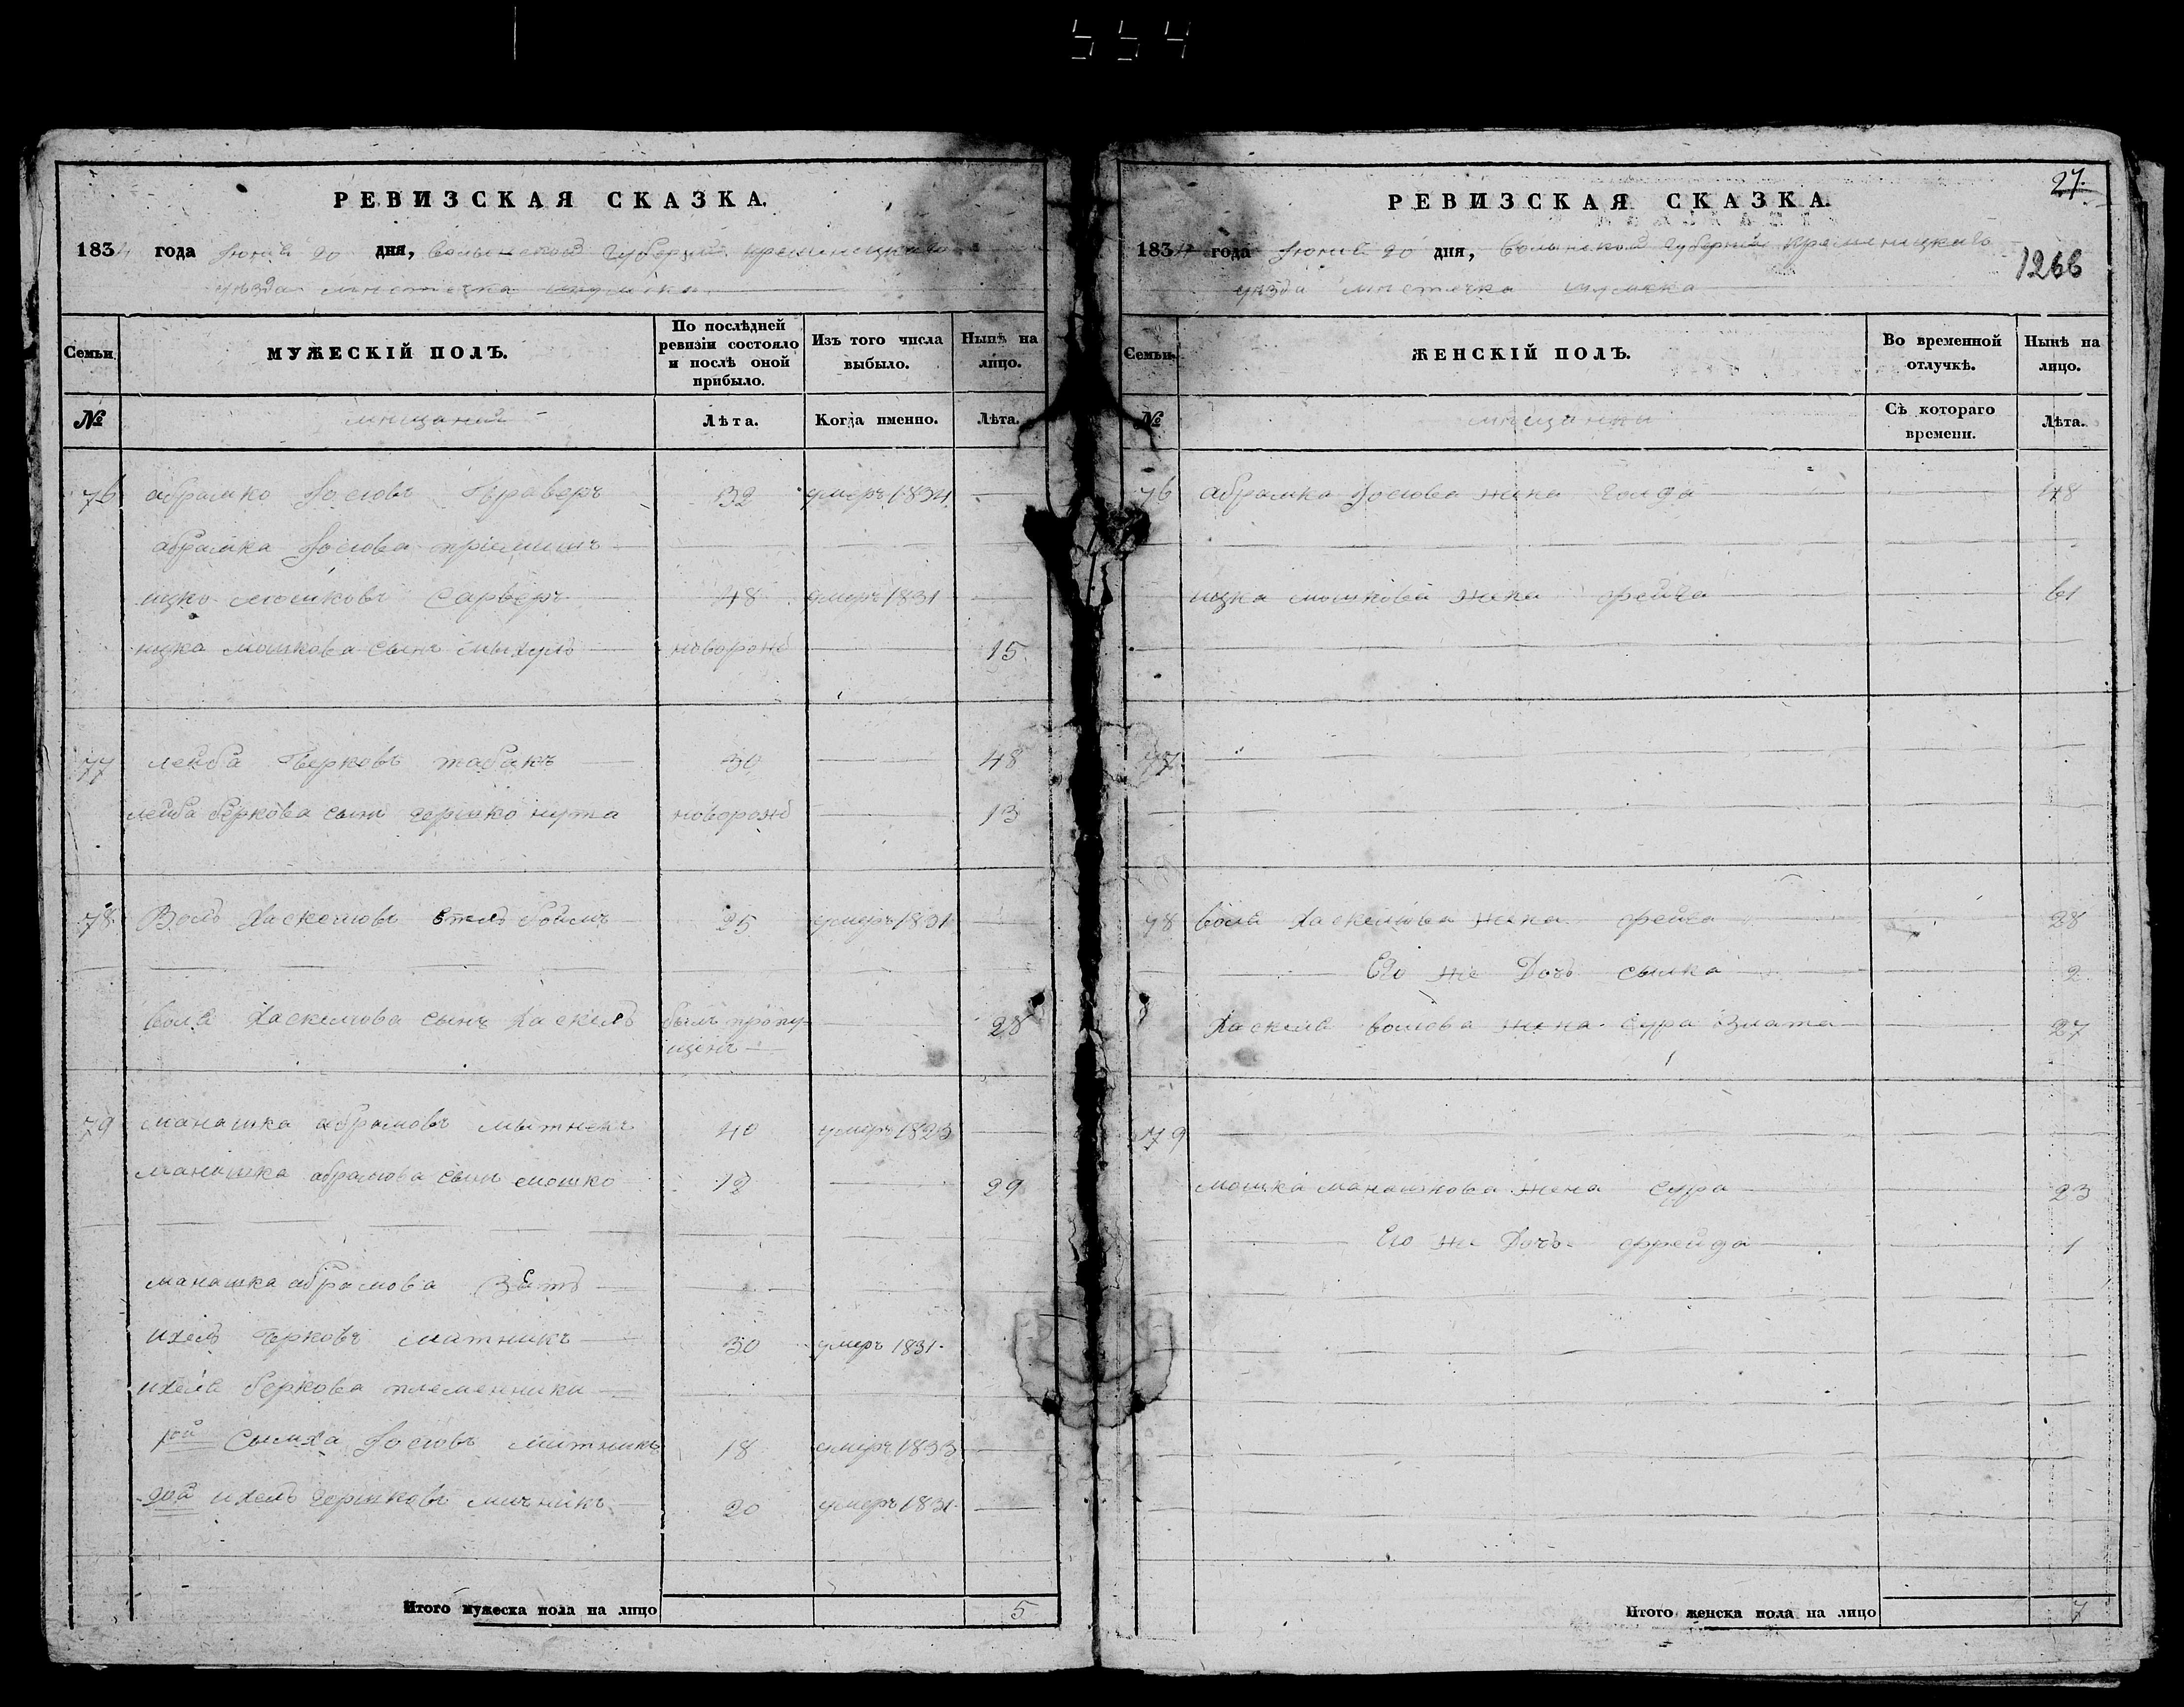 554
РЕВИЗСКАЯ СКАЗКА.
1834 года Июня 20 дня, Волынской Губернии Кременецкаго
уѣзда мѣстечка Шумска
Семьи
МУЖЕСКІЙ ПОЛЪ.
По послѣдней ревизіи состояло и послѣ оной прибыло.
Изъ того числа выбыло.
Нынѣ на лицо.
№
мѣщане
Лѣта.
Когда именно.
Лѣта.
76 абрамко Іосіовъ 32 умеръ 1834 —
абрамка Іосіова
ицко мошковъ Сарверъ 48 умеръ 1831 —
ицка мошкова сынъ новорожд — 15
77 лейба берковъ табакъ 30 — 48
лейба беркова сынъ гершко нута новорожд — 13
78 Волъ Хаскеліовъ 25 умеръ 1831 —
Волѣ Хаскеліова сынъ Хаскель былъ пропу- — 28
щенъ —
79 манашка абрамовъ мытникъ 40 умеръ 1823 —
манашка абрамова сынъ мошко 12 — 29
манашка абрамова зять
ихель берковъ мытникъ 30 умеръ 1831.
ихеля беркова племенники
1ой Сымха Іосіовъ митникъ 18 умеръ 1833 —
2ой ихель гершковъ митникъ 20 умеръ 1831. —
Итого мужеска пола на лицо 5
27.
1266
РЕВИЗСКАЯ СКАЗКА.
1834 года Июня 20 дня, Волынской Губерніи Кременецкаго
уѣзда мѣстечка Шумска
Семьи.
ЖЕНСКІЙ ПОЛЪ.
Во временной отлучкѣ.
Нынѣ на лицо.
№
мѣщанки
Съ котораго времени.
Лѣта.
76 абрамка Іосіова жена Голда — 48
ицка мошкова жена фейга — 61
77
78 Волѣ Хаскеліова жена фейга — 28
Его же Дочь сымка — 2
Хаскеля воліова жена сура злата — 27
79
мошка манашкова жена сура — 23
Его же Дочь фрейда — 1
Итого женска пола на лицо 7